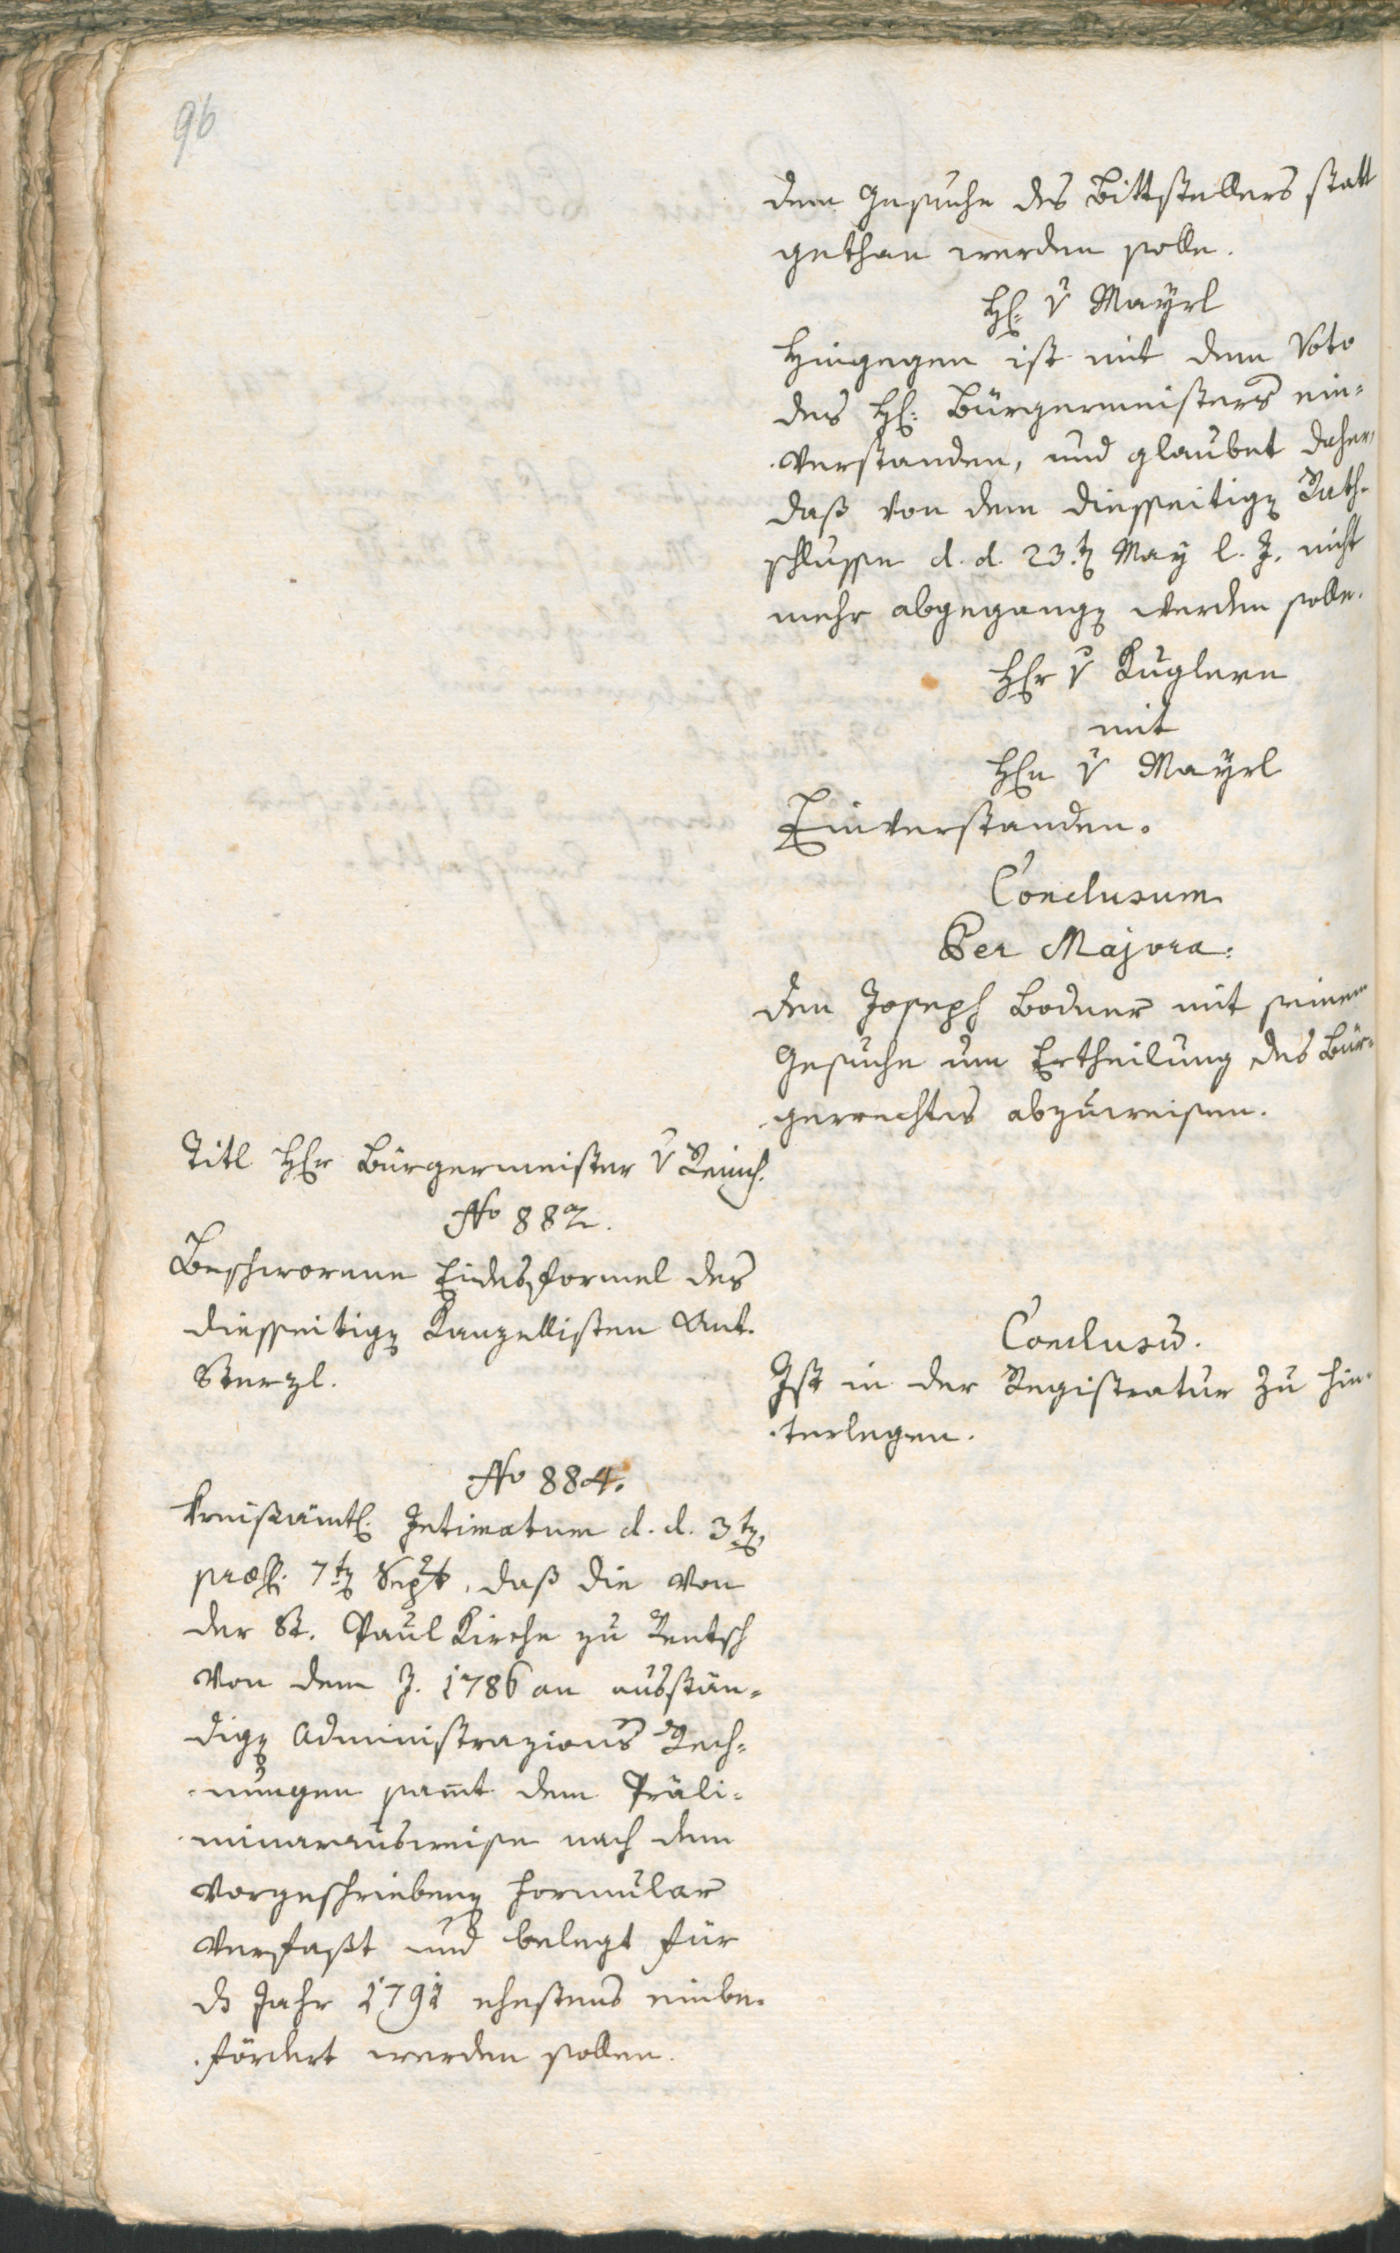 96
dem Gesuche des Bittstellers statt
gethan werden solle.
H: v Mayrl
Hingegen ist mit dem Voto
des H: Bürgermeisters ein-
verstanden, und glaubet daher,
daß von dem diesseitigen Rath-
schlusse d. d. 23.ten May l. J. nicht
mehr abgegangen werden solle.
Hr v Kuglern
mit
Hn v Mayrl
Einverstanden.
Conclusum
Per Majora:
Den Joseph Bodner mit seinem
Gesuche um Ertheilung des Bür-
gerrechtes abzuweisen.
Titl Hr Bürgermeister v
No 882.
Beschworene Eidesformel des
diesseitigen Kanzellisten Ant.
Sterzl.
Conclusum.
Ist in der Registratur zu hin-
terlegen.
No 884.
Kreisämtl. Intimatum d. d. 3ten,
præs. 7ten Sept, daß die von
der St. Paul Kirche zu Rentsch
von dem J. 1786 an ausstän-
digen Administrazions Rech-
nungen sammt dem Präli-
minarausweise nach dem
vorgeschriebenen Formular
verfaßt und belegt für
ds Jahr 1791 ehestens einbe-
fördert werden sollen.